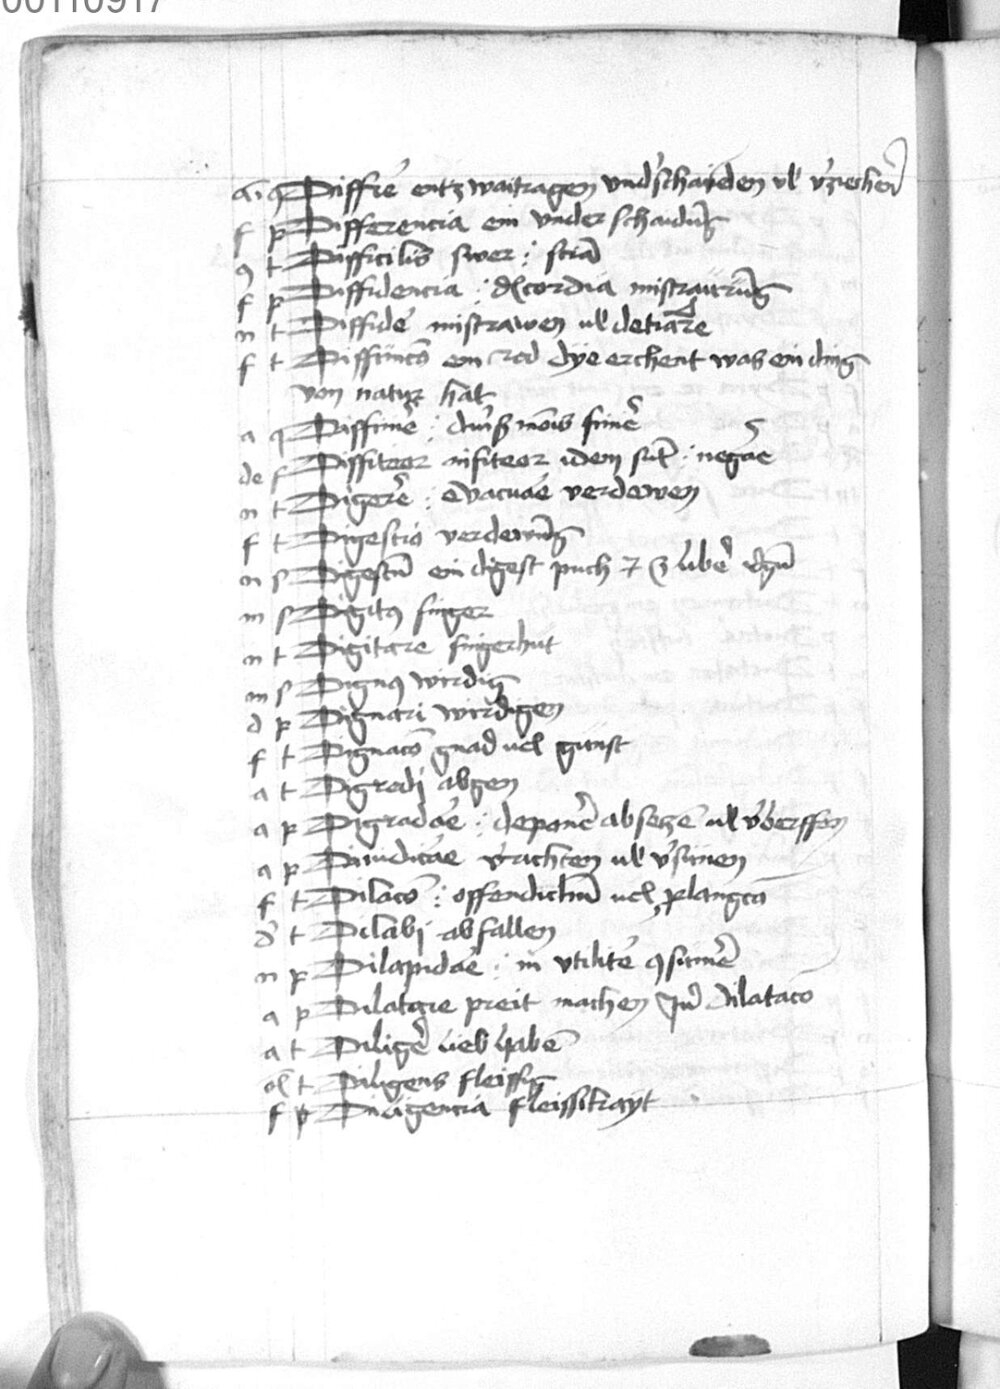 00110917
a. q Differe entzwaitragen vnderschaiden vel verziechen
f p Differencia ein vnderschaidung
o t Difficilis swer
f p Diffidencia : discordia mistrawung
n t Diffidere mistrawen vel
f t Diffinicio ein red dye erchent was ein ding
von natur hat
a q Diffinire : diuersis modis finire
de s Diffiteor infiteor idem sunt : negare
n t Digere : evacuare verdewen
f t Digestio verdewung
n s Digestum ein digest puch
m s Digitus finger
n t Digitare fingerhut
m s Dignus wirdig
d p Dignari wirdigen
f t Dignacio gnad vel gunst
a t Digredi abgen
a p Digradare : deponere absetzen vel verberffen
a p Diiudicare verrichten vel versunen
f t Dilacio : offendiclum vel prolangcio
d t Dilabi abfallen
n p Dilapidare : in vtilite consumere
a p Dilatare preit machen Inde dilatacio
a t Diligere lieb haben
o t Diligens fleissig
f p Diligencia fleissikayt